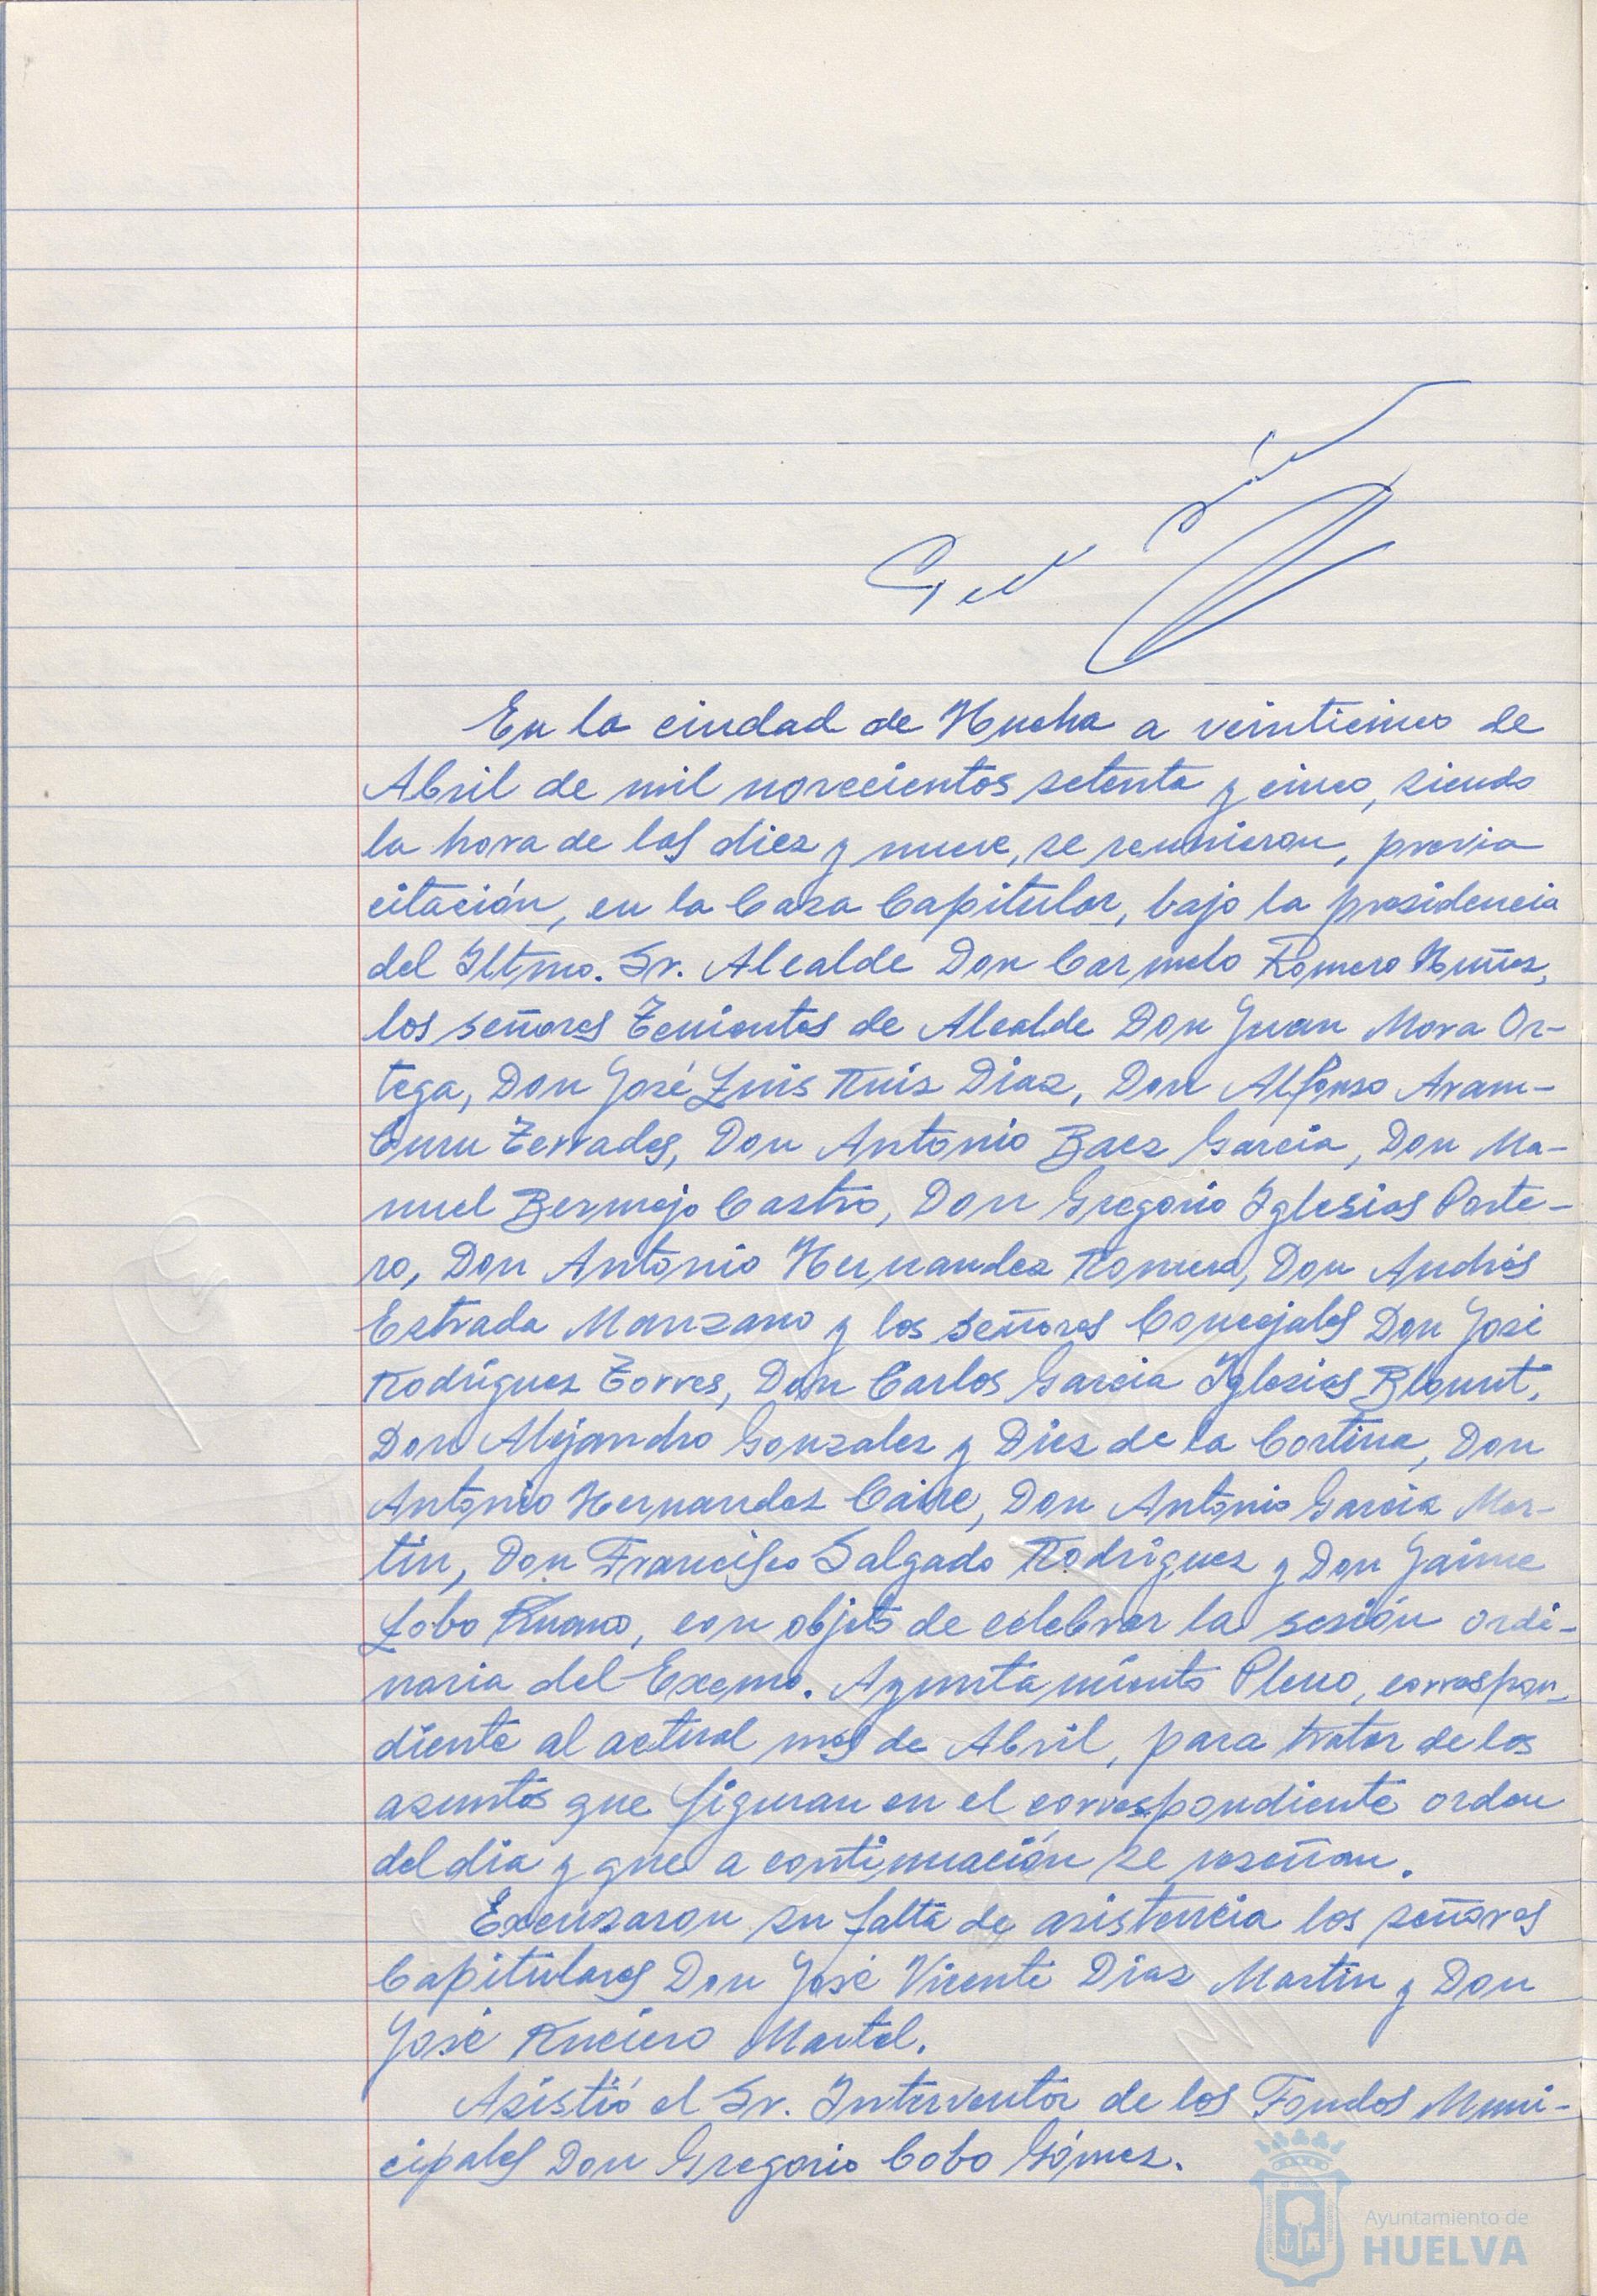 En la ciudad de Huelva a veinticinco de
Abril de mil novecientos setenta y cinco, siendo
la hora de las diez y nueve, se reunieron, previa
citación, en la Casa Capitular, bajo la presidencia
del Iltmo. Sr. Alcalde Don Carmelo Romero Nuñez,
los señores Tenientes de Alcalde Don Juan Mora Or-
tega, Don José Luis Ruiz Diaz, Don Alfonso Aram-
buru Terrades, Don Antonio Baez Garcia, Don Ma-
nuel Bermejo Castro, Don Gregorio Iglesias Porte-
ro, Don Antonio Hernandez Romera, Don Andrés
Estrada Manzano y los señores Concejales Don José
Rodríguez Torres, Don Carlos Garcia Iglesias Blount,
Don Alejandro Gonzalez y Diez de la Cortina, Don
Antonio Hernandez Caire, Don Antonio Garcia Mar-
tin, Don Francisco Salgado Rodríguez y Don Jaime
Lobo Ruano, con objeto de celebrar la sesión ordi-
naria del Excmo. Ayuntamiento Pleno, correspon-
diente al actual mes de Abril, para tratar de los
asuntos que figuran en el correspondiente orden
del dia y que a continuación se reseñan.
Excusaron su falta de asistencia los señores
Capitulares Don José Vicente Diaz Martin y Don
José Martel.
Asistió el Sr. Interventor de los Fondos Muni-
cipales Don Gregorio Cobo Gómez.
Ayuntamiento de
HUELVA